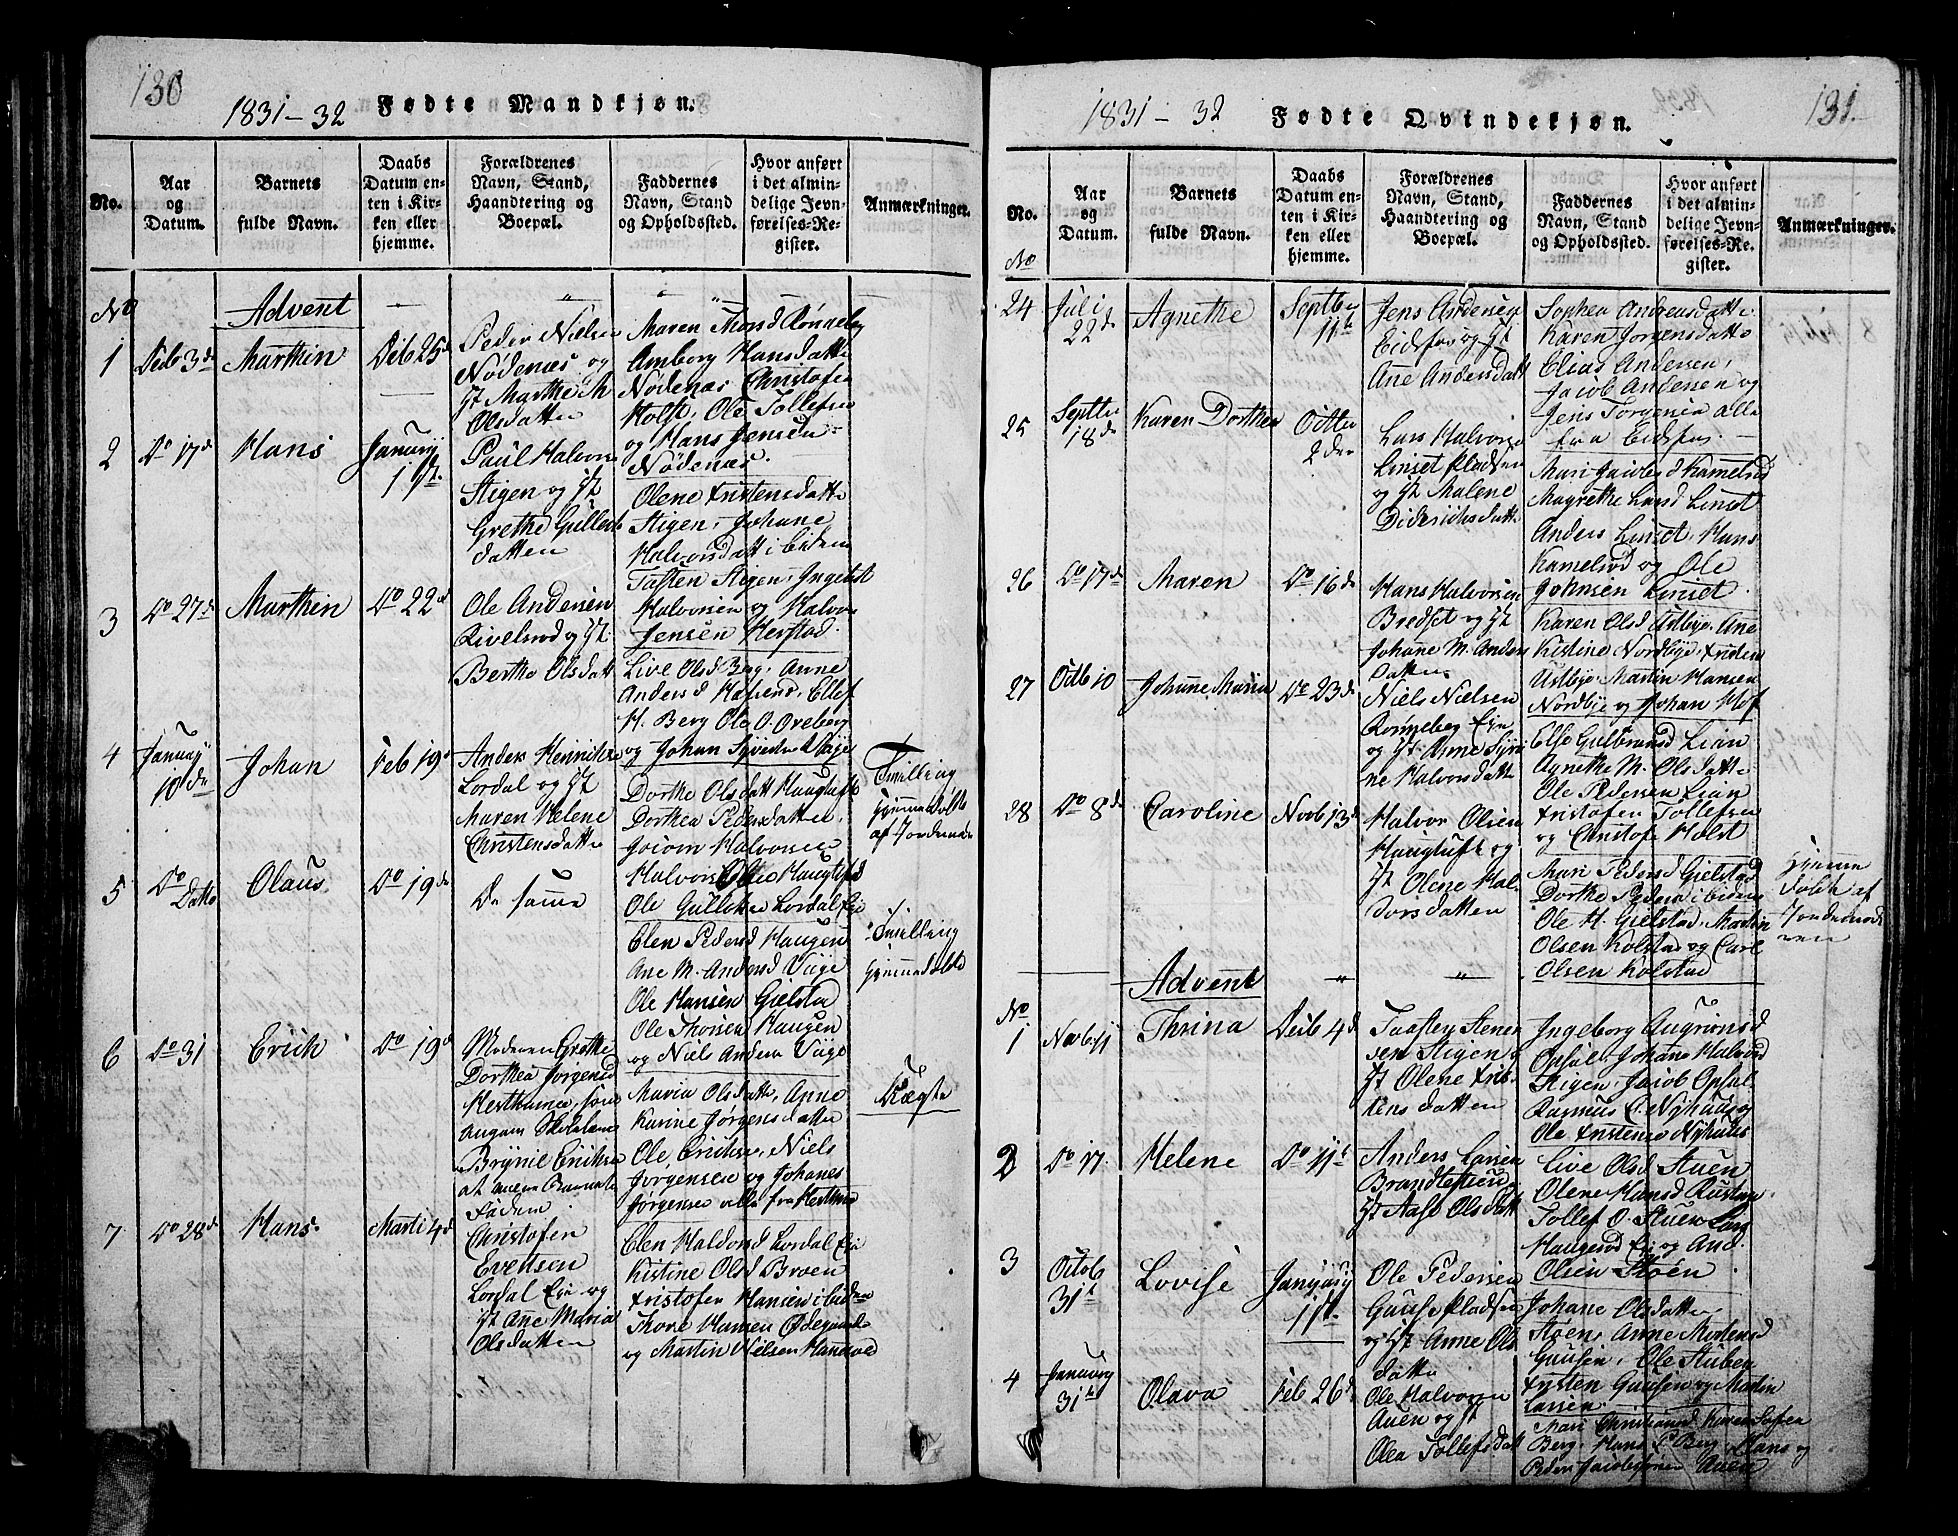 130
1831-32 Fødte Mandkjøn.
No.
Aar og Datum.
Barnets fulde Navn.
Daabs Datum enten i Kirken eller hjemme.
Forældrenes Navn, Stand, Haandtering og Boepæl.
Faddernes Navn, Stand og Opholdssted.
Hvor anført i det almindelige Jevnførelses-Register.
Anmærkninger.
No Advent
1 Deb 3de Marthin Deb 25d
Peder Nielsen
Nödenæs og
Marthe M
Olsdatter
Maren Thorsd Rönneberg
Amborg Hansdatter
Nödenæs Christofer
Holst, Ole Tollefsen
og Hans Jensen
Nödenæs.
2 Do 17de Hans Januarj 1ste
Paul Halvors
Stigen og
Grethe Gulleks
datter
Olene Xristensdatte
Stigen, Johane
Halvorsdatt i Eidem
Tosten Stigen, Ingebt
Halvorsen og Halvor
Jensen Herstad.
3 Do 27de Marthin Do 22d
Ole Andersen
Rivelsrod og
Berthe Olsdatt
Live Olsd Berg, Anne
Andersd Hafsend, Ellef
H. Berg Ole O. Oreberg
og Johan
4 Januarj 10de Johan Feb 19de
Anders Henrichs
Lordal og
Maren Helene
Christensdatte
Dorthe Olsdatt Haugtufte
Dorthea Pedersdatter
Halvorsen
Halvor Haugtufte
Ole Gulleksen Lordal Eie
Tvilling
hjemmedöbt
af Jordemod
5 Do Datto Olaus Do 19de
De samme
Elen Pedersd Haugen
Ane M. Andersd Viige
Ole Hansen Gielstad
Ole Thorsen Haugen
og Niels Andersen Viige
Tvilling
hjemmedöbt
6 Do 31 Erich Do 19d
Moderen Grethe
Dorthea Jorgensd
Brynil Erichsen
Fader
Maria Olsdatte, Anne
Karine Jørgensdatter
Ole Erichsen, Niels
Jorgensen og Johanes
Jørgensen alle fra
Uægte
7 Do 28de Hans Marti 4d
Christofer
Evensen
Lordal Eie og
Ane Maria
Olsdatter
Elen Halvorsd Lordal Eie
Kistine Olsd Broen
Xristofer Hansen i Eidem
Thore Hansen Ødegaard
og Martin Nielsen
131.
1831-32 Fødte Qvindekjøn.
No.
Aar og Datum.
Barnets fulde Navn.
Daabs Datum enten i Kirken eller hjemme.
Forældrenes Navn, Stand, Haandtering og Boepæl.
Faddernes Navn, Stand og Opholdssted.
Hvor anført i det almindelige Jevnførelses-Register.
Anmærkninger.
No
24 Juli 22de Agnethe Septbr 11te
Jens Andersen
Eidsfos og
Ane Andersdatt
Sophea Andreasdatte
Karen Jorgensdatte
Elias Andersen,
Jacob Andersen og
Jens Torgersen alle
fra Eidsfos.
25 Septbr 18de Karen Dorthea Octbr 2den
Lars Halvors
Linset Pladsen
og Malene
Diderichsdatte
Mari Jacobsd Kamelrod
Magrethe Larsd Linset
Anders Linset, Hans
Kamelrod og Ole
Johnsen Linset.
26 Do 17de Maren Do 16de
Hans Halvorsen
Bredset og
Johane M. Anders
datter
Karen Olsd Astbye, Ane
Kistine Nordbye, Xristen
Astbye, Martin Hansen
Nordbye og Johan Hof
27 Octb 10 Johanne Maria Do 23de
Niels Nielsen
Ronneberg Eie
og Anne
Halvorsdatt
Else Gulbransd Lian
Agnethe M. Olsdatte
Ole Pedersen Lian
Xristofer Tollefsen
og Christofer Holst
28 Do 8de Caroline Novb 13d
Halvor Olsen
Haugtuft og
Olene Hal
vorsdatter
Mari Pedersd Gielstad
Dorthe Pedersd i Eidem
Ole H. Gielstad, Martin
Olsen Kolstad og Carl
Olsen Kolstad
hjemme
döbt af
Jordemod
eren
Advent
No
1 Novb 11 Thrina Deb 4d
Stigen
Olene Xris
tensdatter
Ingeborg
Opsal, Johane Halvord
Stigen, Jacob Opsal
Rasmus C. Nyhuus og
Ole Xristensen Nyhuus
2 Do 17. Helene Do 11te
Anders Larsen
og
Aase Olsdatt
Live Olsd Stuen
Olene Hansd Rustan
Tollef O. Stuen Lars
Haugerod Eie og And.
Olsen Støen
3 Octob 31te Lovise Januarj 1ste
Ole Pedersen
Gausse Pladsen
og Anne Ols
datte
Johane Olsdatter
Støen, Anne Mortensd
Gausen, Ole Stuben
Xristen Gausen og Martin
Larsen.
4 Januarj 31te Olava Feb 26d
Ole Halvorsen
Auen og
Olea Tollefsdatt
Mari Christiansd Karen Sofie
Berg, Hans P Berg, Hans og
Peder Jacobsønner Auen